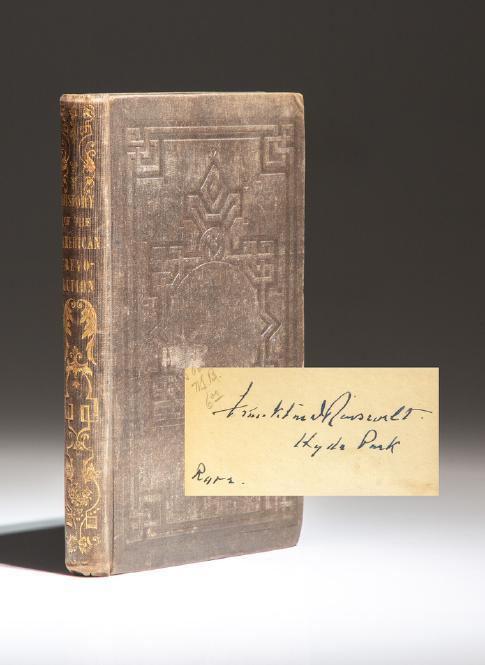 HISTORY
OF THE
AMERICAN
REVO-
LUTION
Franklin D Roosevelt.
Hyde Park
Rare.